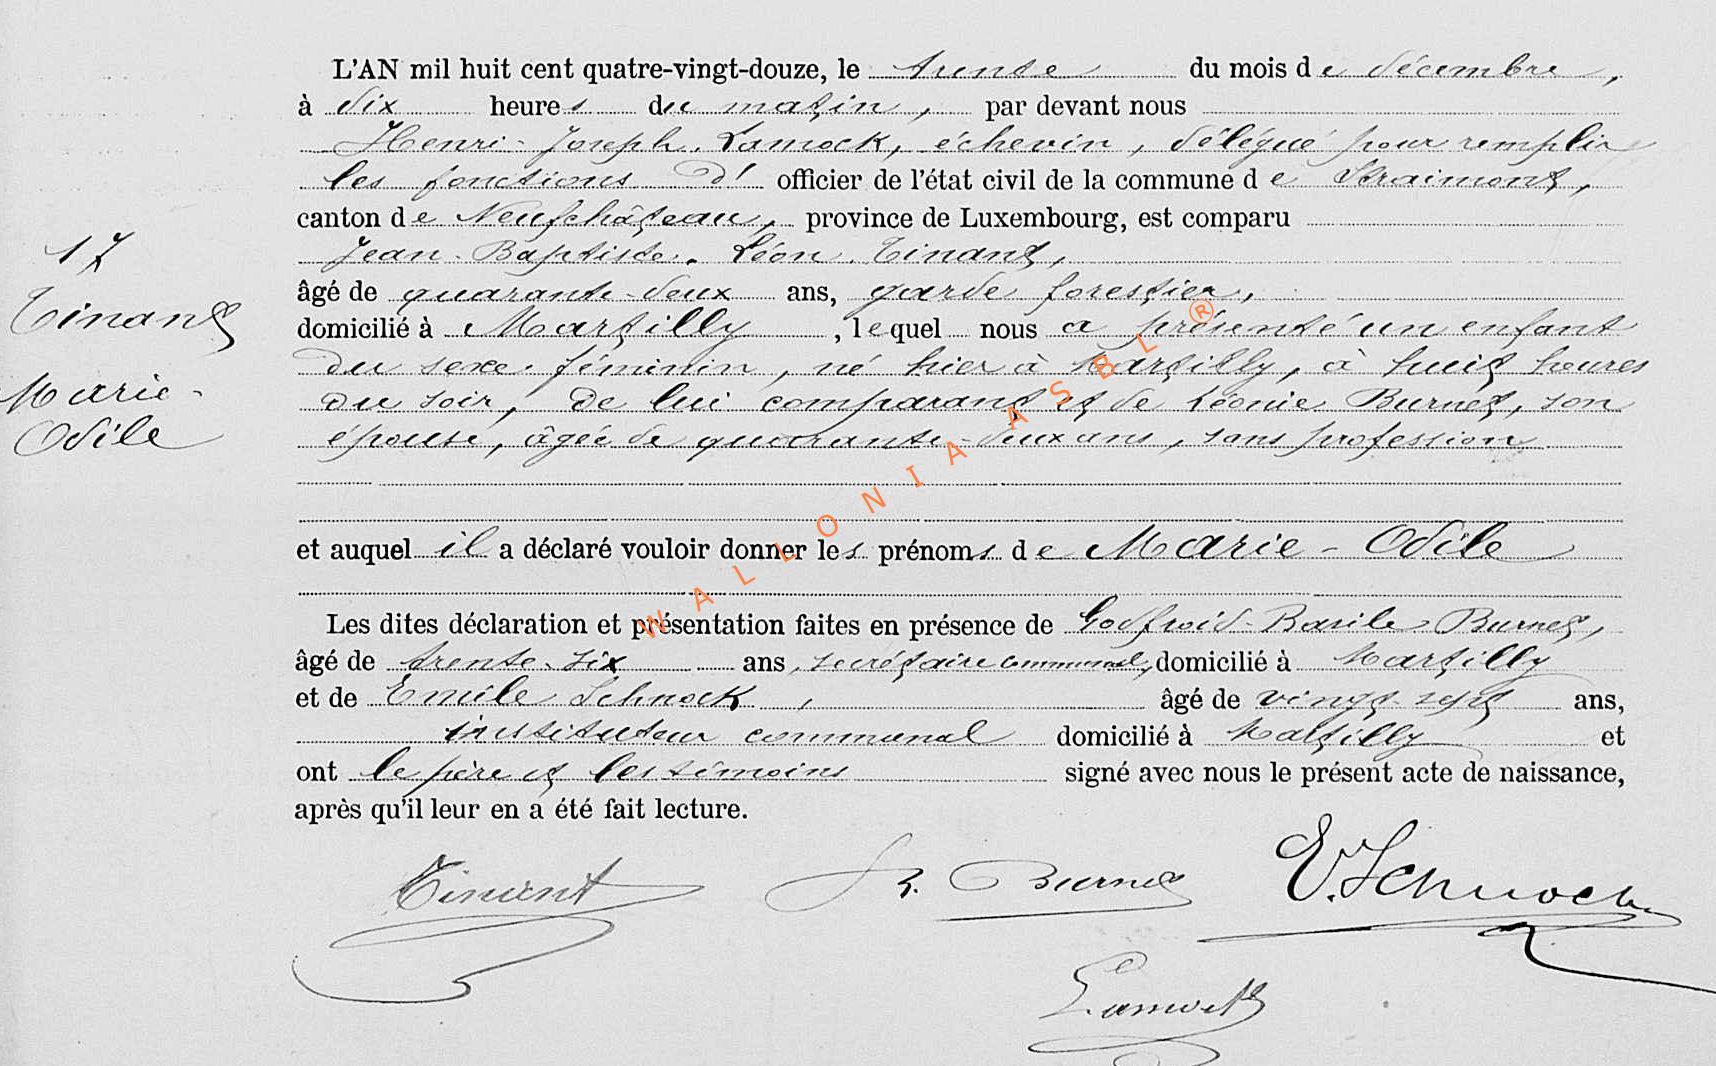 L'AN mil huit cent quatre-vingt-douze, le trente du mois de décembre,
à dix heures du matin, par devant nous
Henri-Joseph Lamock, échevin, délégué pour remplir
les fonctions d' officier de l'état civil de la commune de Straimont,
canton de Neufchâteau, province de Luxembourg, est comparu
Jean-Baptiste-Léon Tinant,
âgé de quarante-deux ans, garde forestier,
domicilié à Martilly, lequel nous a présenté un enfant
du sexe féminin, né hier à Martilly, à huit heures
du soir, de lui comparant et de Léonie Burnet, son
épouse, âgée de quarante-deux ans, sans profession
et auquel il a déclaré vouloir donner les prénoms de Marie-Odile
Les dites déclaration et présentation faites en présence de Godfroid-Basile Burnet,
âgé de trente-six ans, secrétaire communal, domicilié à Martilly
et de Emile Schnock, âgé de vingt-sept ans,
instituteur communal domicilié à Martilly et
ont le père et les témoins signé avec nous le présent acte de naissance,
après qu'il leur en a été fait lecture.
17
Tinant
Marie-
Odile
Tinant Burnet E. Schnock
Lamock
WALLONIA ASBL ®